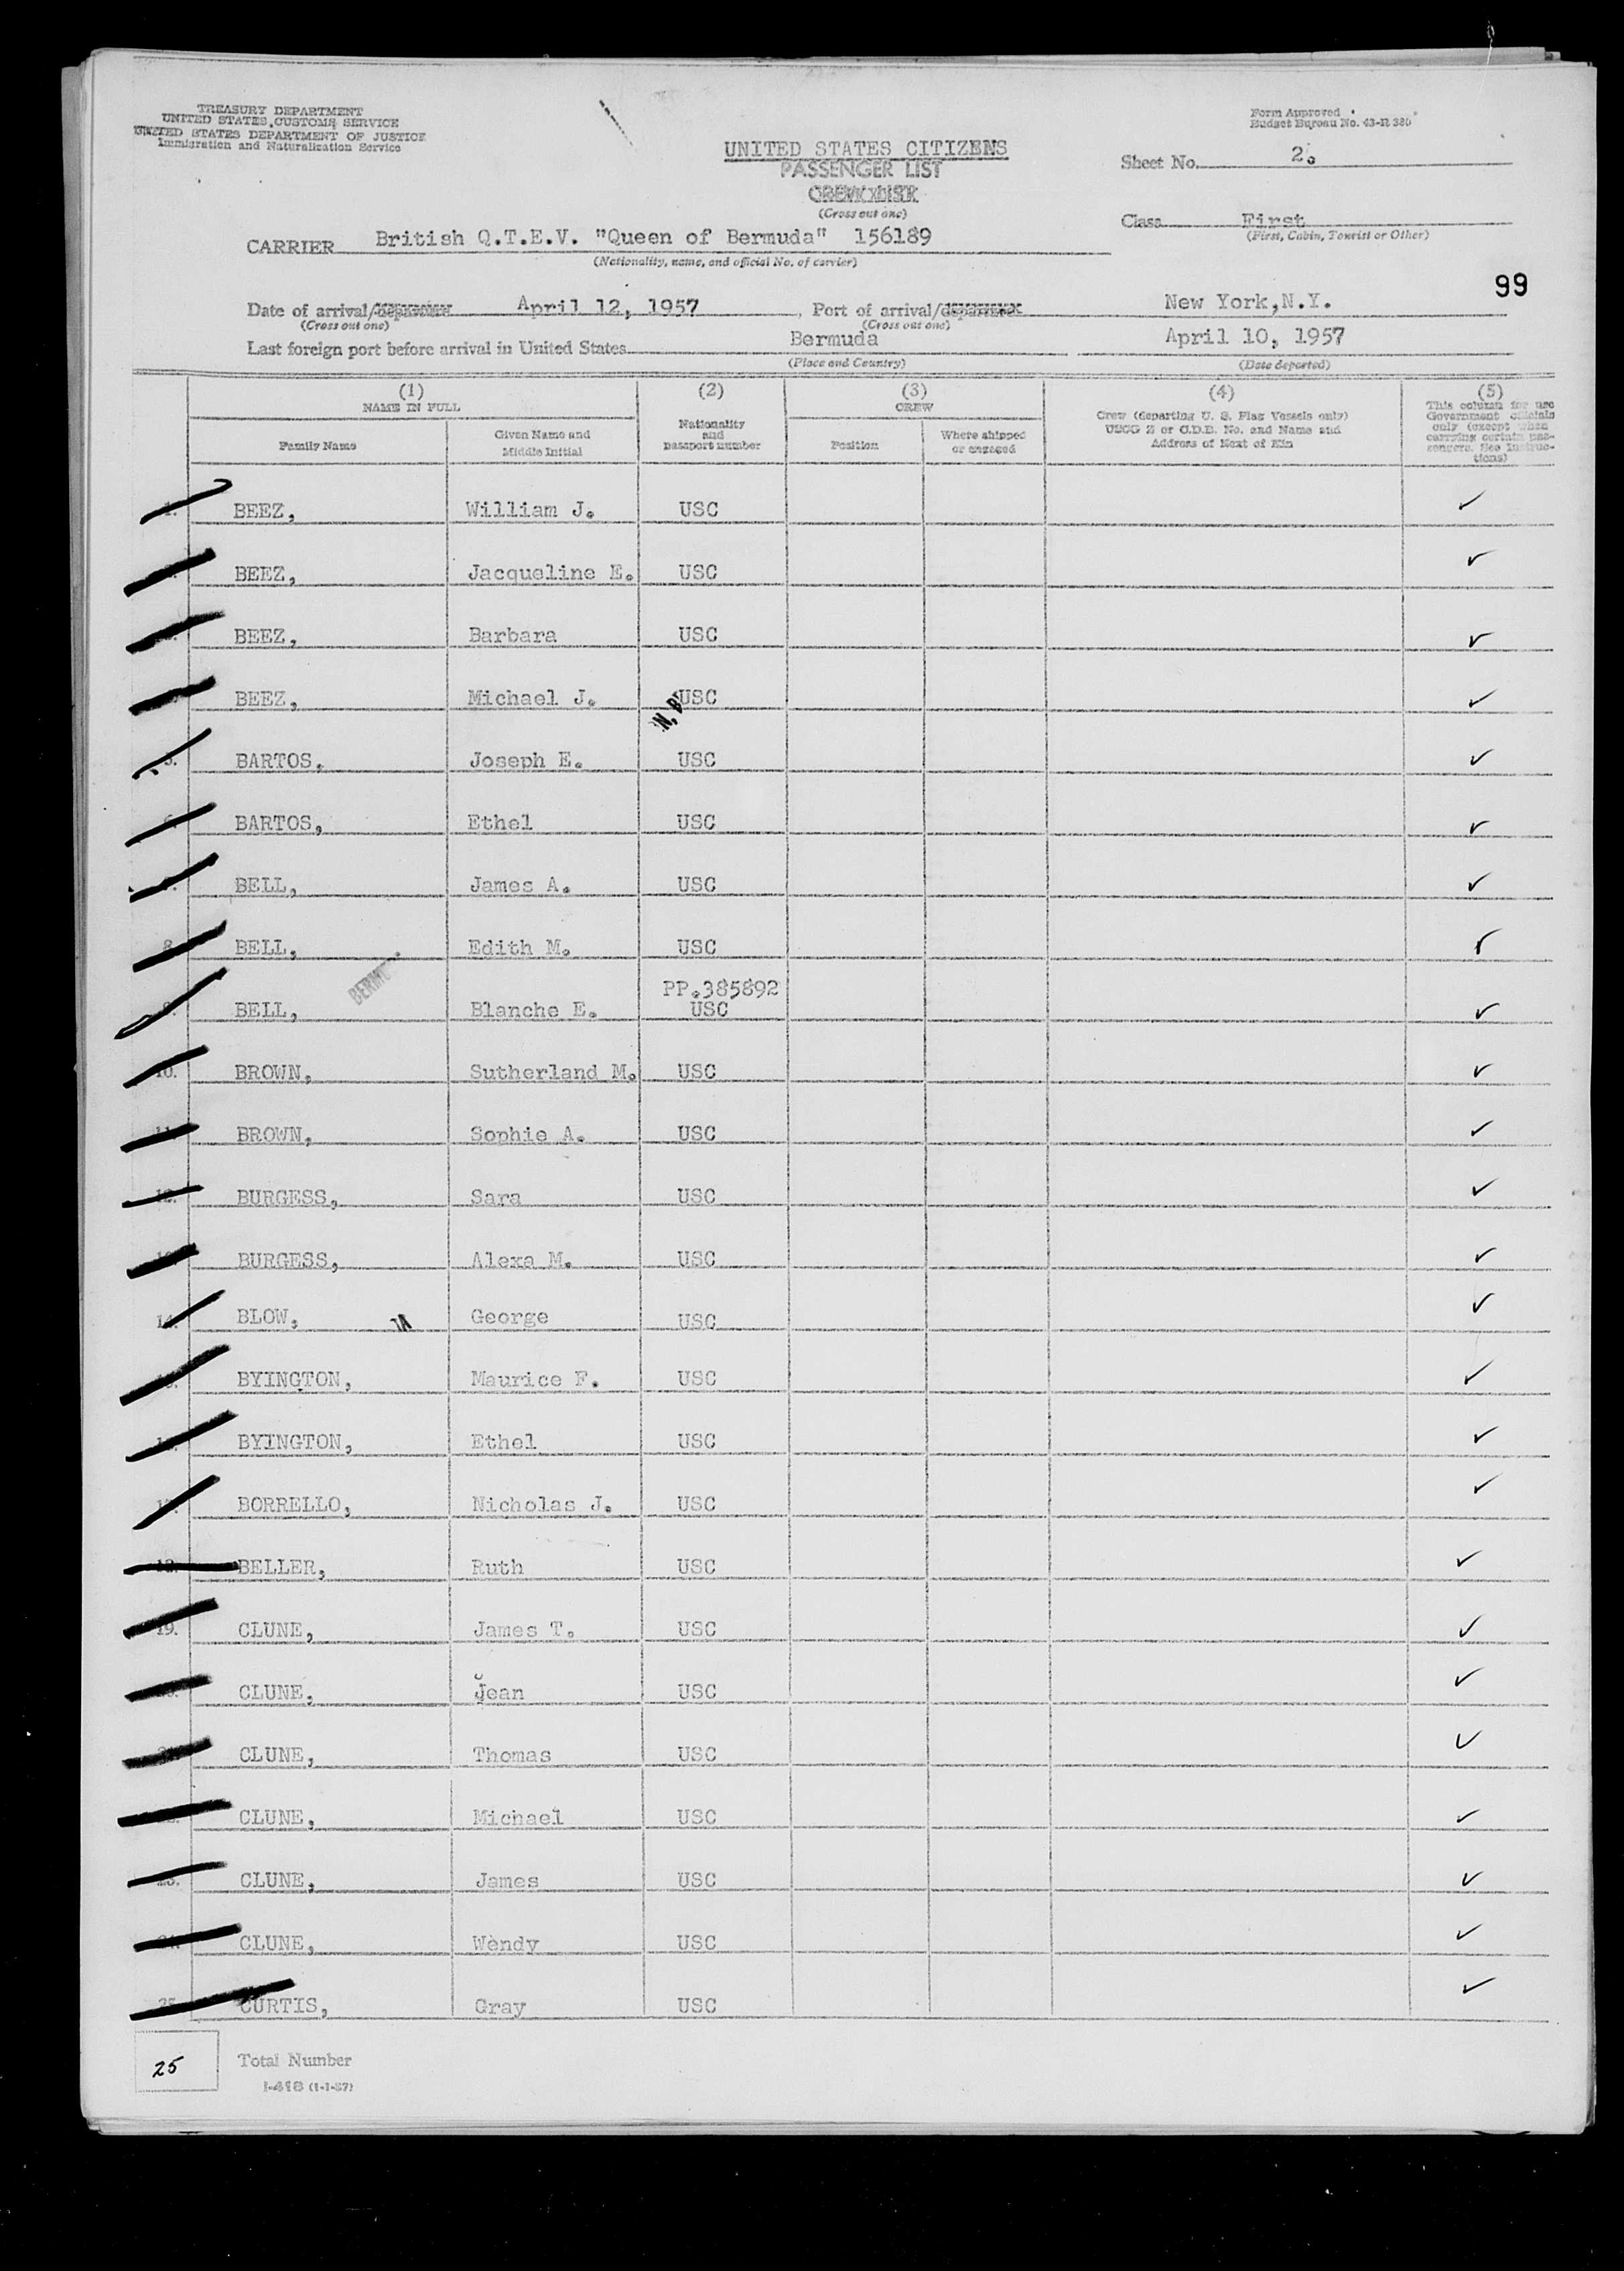 TREASURY DEPARTMENT
UNITED STATES CUSTOMS SERVICE
UNITED STATES DEPARTMENT OF JUSTICE
Immigration and Naturalization Service
Form Approved
Budget Bureau No. 43-R 380
UNITED STATES CITIZENS
PASSENGER LIST
CREW LIST
(Cross out one)
Sheet No. 2.
Class First
(First, Cabin, Tourist or Other)
CARRIER British Q.T.E.V. "Queen of Bermuda" 156189
(Nationality, name, and official No. of carrier)
99
Date of arrival/departure April 12, 1957, Port of arrival/departure New York, N.Y.
(Cross out one) (Cross out one)
Last foreign port before arrival in United States Bermuda April 10, 1957
(Place and Country) (Date departed)
(1) (2) (3) (4) (5)
NAME IN FULL
Family Name
Given Name and Middle Initial
Nationality and passport number
CREW
Position
Where shipped or engaged
Crew (departing U. S. Flag Vessels only)
USCG Z or C.D.B. No. and Name and
Address of Next of Kin
This column for use
Government officials
only (except when
carrying certain pas-
sengers. See Instruc-
tions)
BEEZ, William J. USC ✓
BEEZ, Jacqueline E. USC ✓
BEEZ, Barbara USC ✓
BEEZ, Michael J. USC ✓
5. BARTOS, Joseph E. USC ✓
BARTOS, Ethel USC ✓
BELL, James A. USC ✓
8. BELL, Edith M. USC ✓
PP.385892
BELL, Blanche E. USC ✓
10. BROWN, Sutherland M. USC ✓
11. BROWN, Sophie A. USC ✓
12. BURGESS, Sara USC ✓
BURGESS, Alexa M. USC ✓
14. BLOW, George USC ✓
BYINGTON, Maurice F. USC ✓
BYINGTON, Ethel USC ✓
BORRELLO, Nicholas J. USC ✓
18. BELLER, Ruth USC ✓
19. CLUNE, James T. USC ✓
CLUNE, Jean USC ✓
CLUNE, Thomas USC ✓
CLUNE, Michael USC ✓
23. CLUNE, James USC ✓
CLUNE, Wendy USC ✓
25 CURTIS, Gray USC ✓
25 Total Number
I-418 (1-1-57)